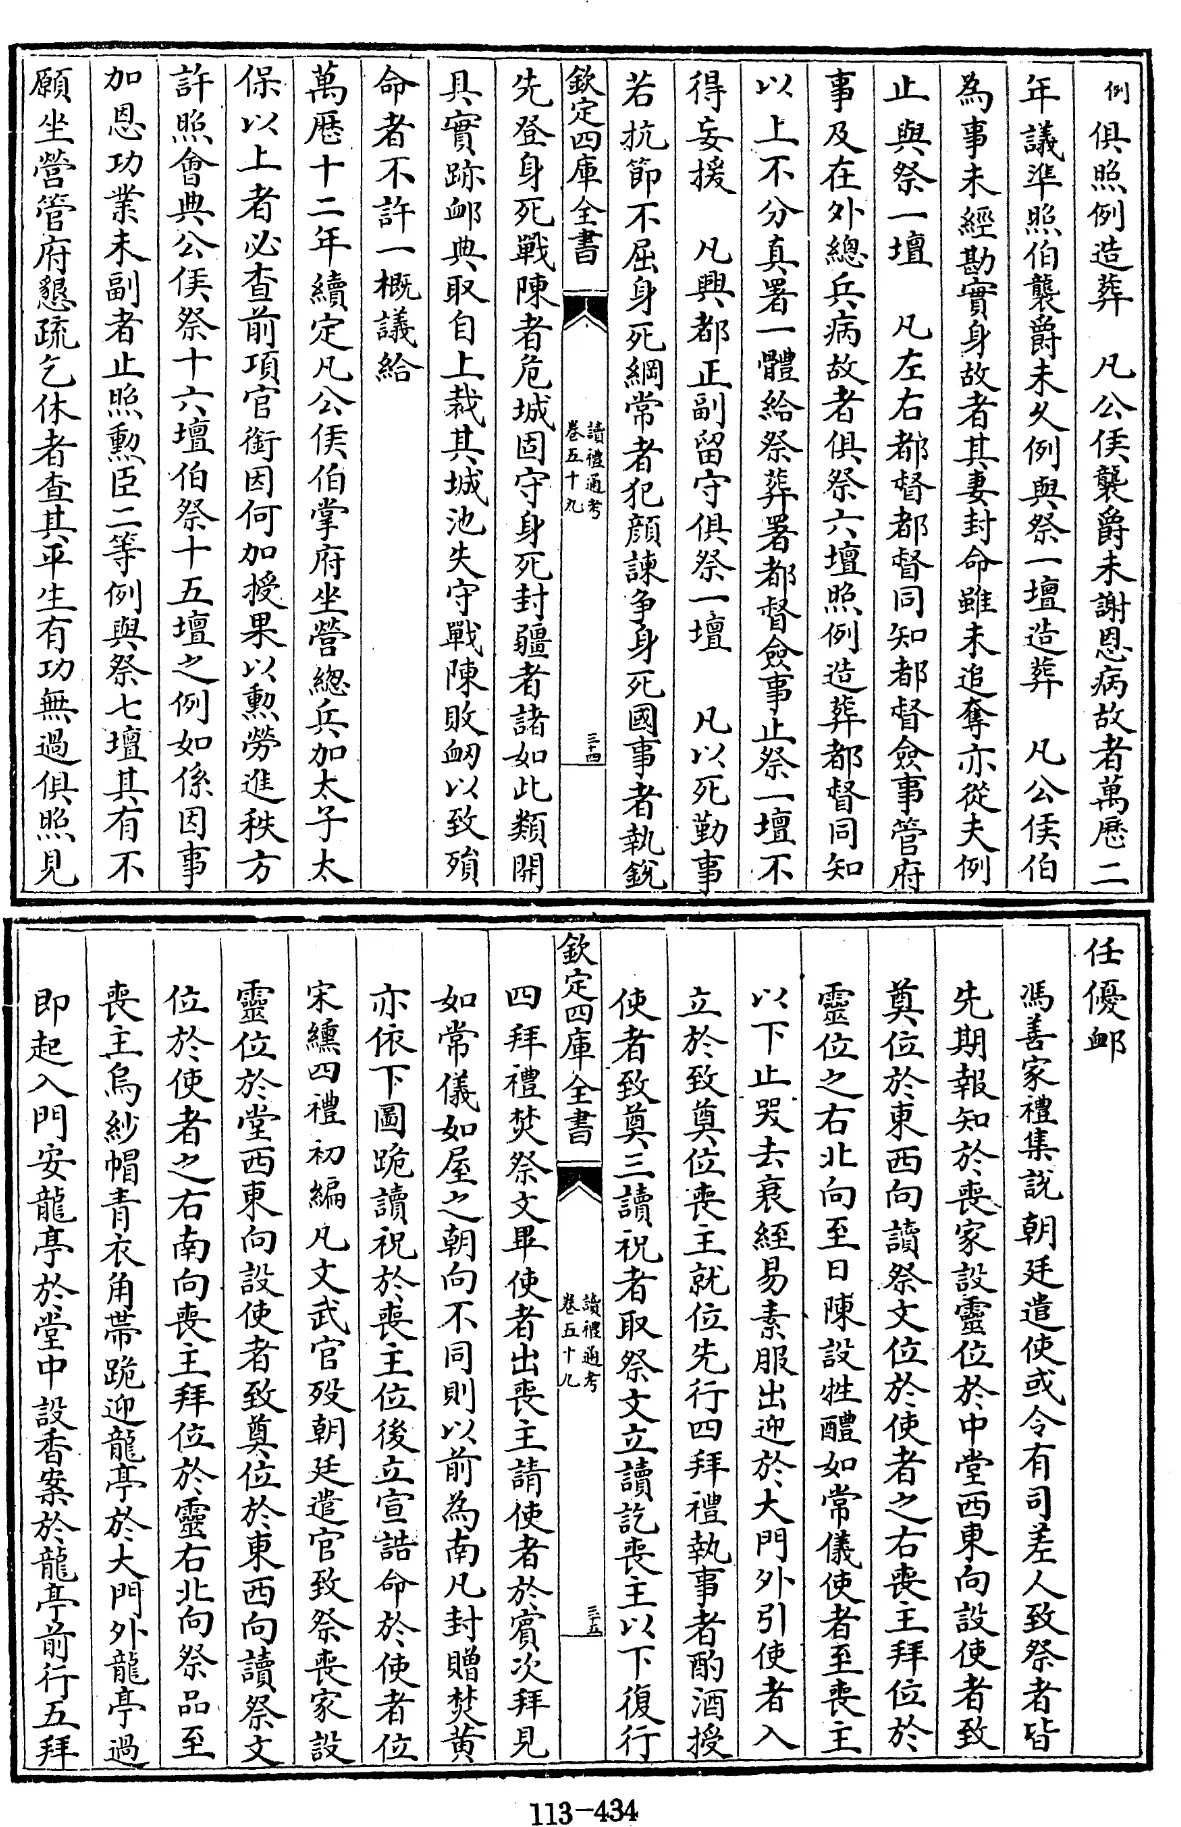 例俱照例造葬　凡公侯襲爵未謝恩病故者萬厯二
年議準照伯襲爵未久例與祭一壇造葬　凡公侯伯
為事未經勘實身故者其妻封命雖未追奪亦從夫例
止與祭一壇　凡左右都督都督同知都督僉事管府
事及在外總兵病故者俱祭六壇照例造葬都督同知
以上不分真署一體給祭葬署都督僉事止祭一壇不
得妄援　凡興都正副留守俱祭一壇　凡以死勤事
若抗節不屈身死綱常者犯顔諫争身死國事者執銳
欽定四庫全書
讀禮通考
卷五十九
三十四
先登身死戰陳者危城固守身死封疆者諸如此類開
具實跡䘏典取自上裁其城池失守戰陳敗衂以致殞
命者不許一概議給
萬厯十二年續定凡公侯伯掌府坐營總兵加太子太
保以上者必查前項官銜因何加授果以勲勞進秩方
許照會典公侯祭十六壇伯祭十五壇之例如係因事
加恩功業未副者止照勲臣二等例與祭七壇其有不
願坐營管府懇疏乞休者查其平生有功無過俱照見
任優䘏
馮善家禮集説朝廷遣使或令有司差人致祭者皆
先期報知於喪家設靈位於中堂西東向設使者致
奠位於東西向讀祭文位於使者之右喪主拜位於
靈位之右北向至日陳設牲醴如常儀使者至喪主
以下止哭去衰絰易素服出迎於大門外引使者入
立於致奠位喪主就位先行四拜禮執事者酌酒授
使者致奠三讀祝者取祭文立讀訖喪主以下復行
欽定四庫全書
讀禮通考
卷五十九
三十五
四拜禮焚祭文畢使者出喪主請使者於賓次拜見
如常儀如屋之朝向不同則以前為南凡封贈焚黄
亦依下圖跪讀祝於喪主位後立宣誥命於使者位
宋纁四禮初編凡文武官殁朝廷遣官致祭喪家設
靈位於堂西東向設使者致奠位於東西向讀祭文
位於使者之右南向喪主拜位於靈右北向祭品至
喪主烏紗帽青衣角帶跪迎龍亭於大門外龍亭過
即起入門安龍亭於堂中設香案於龍亭前行五拜
113-434